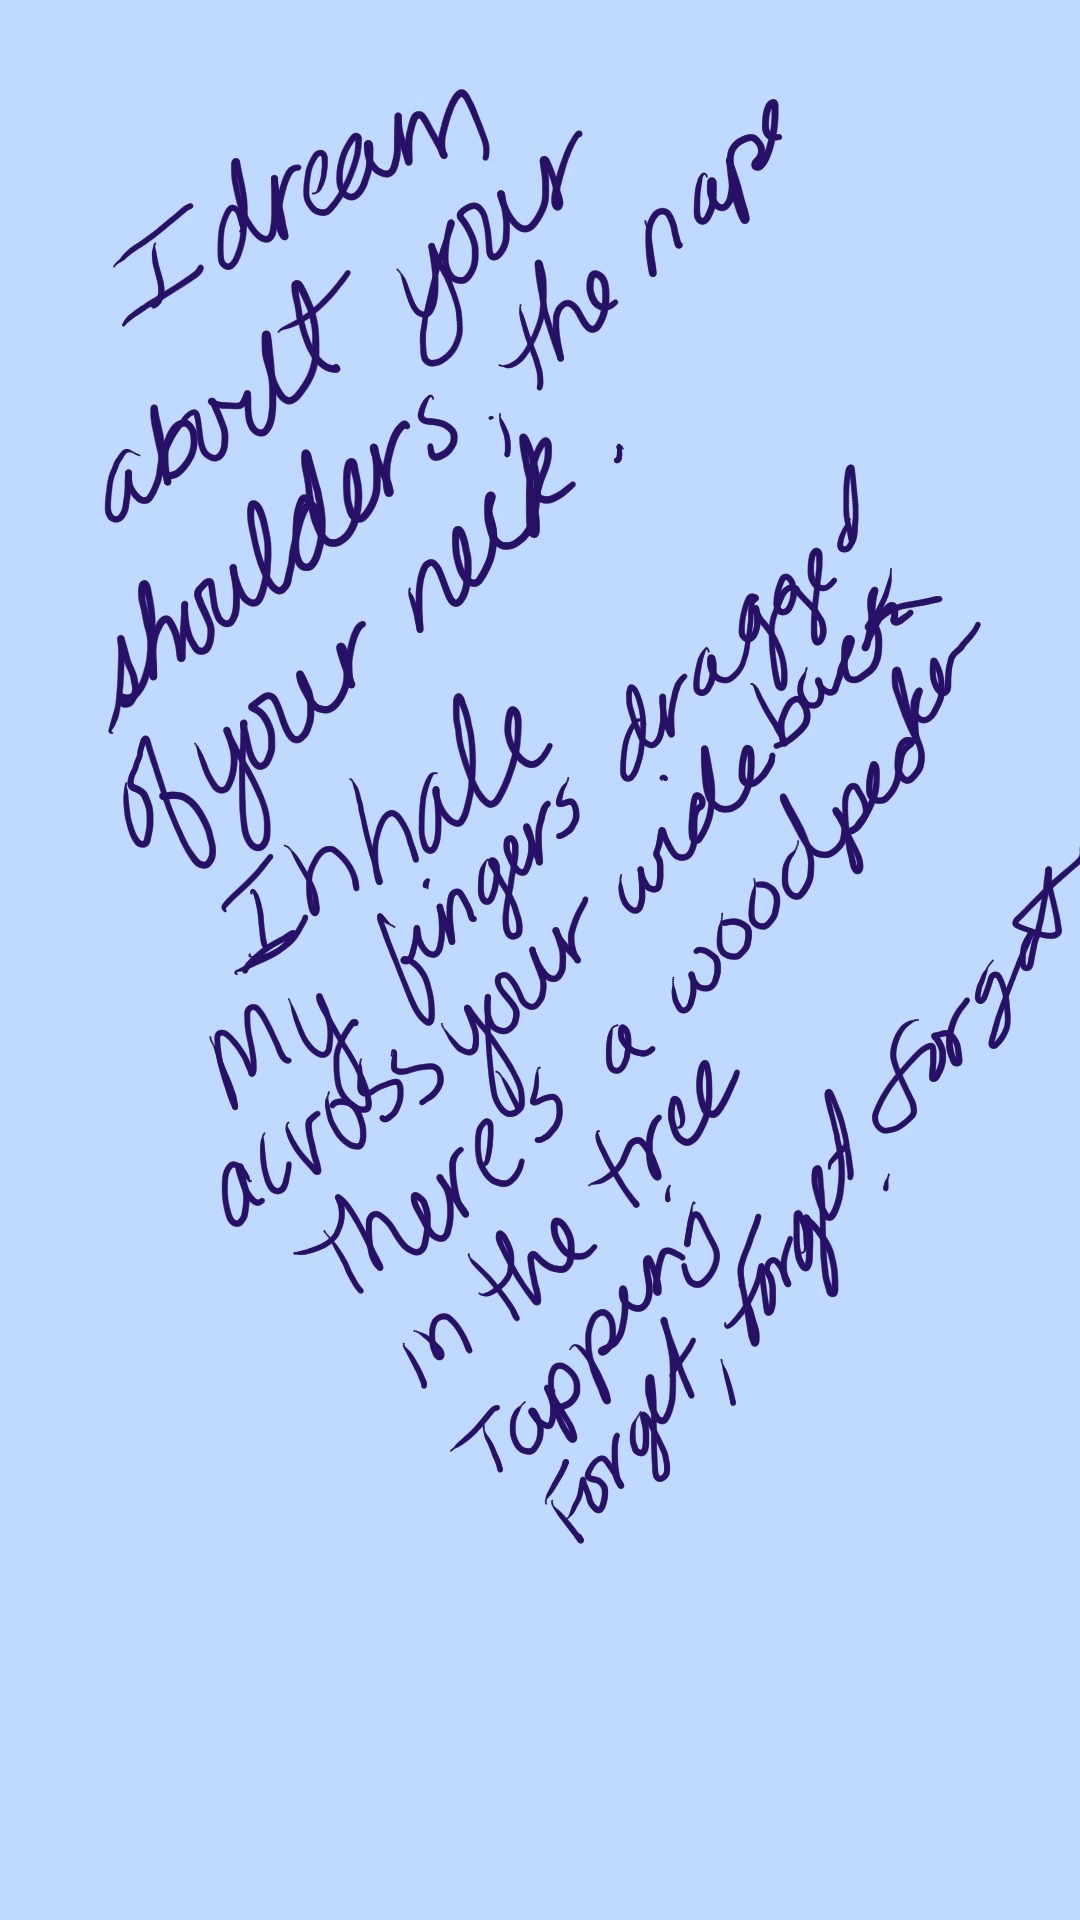 I dream
about your
shoulders, the nape
of your neck.
Inhale
My fingers dragged
across your wide back
There's a woodpecker
in the tree
Tapping
Forget, forget. forget